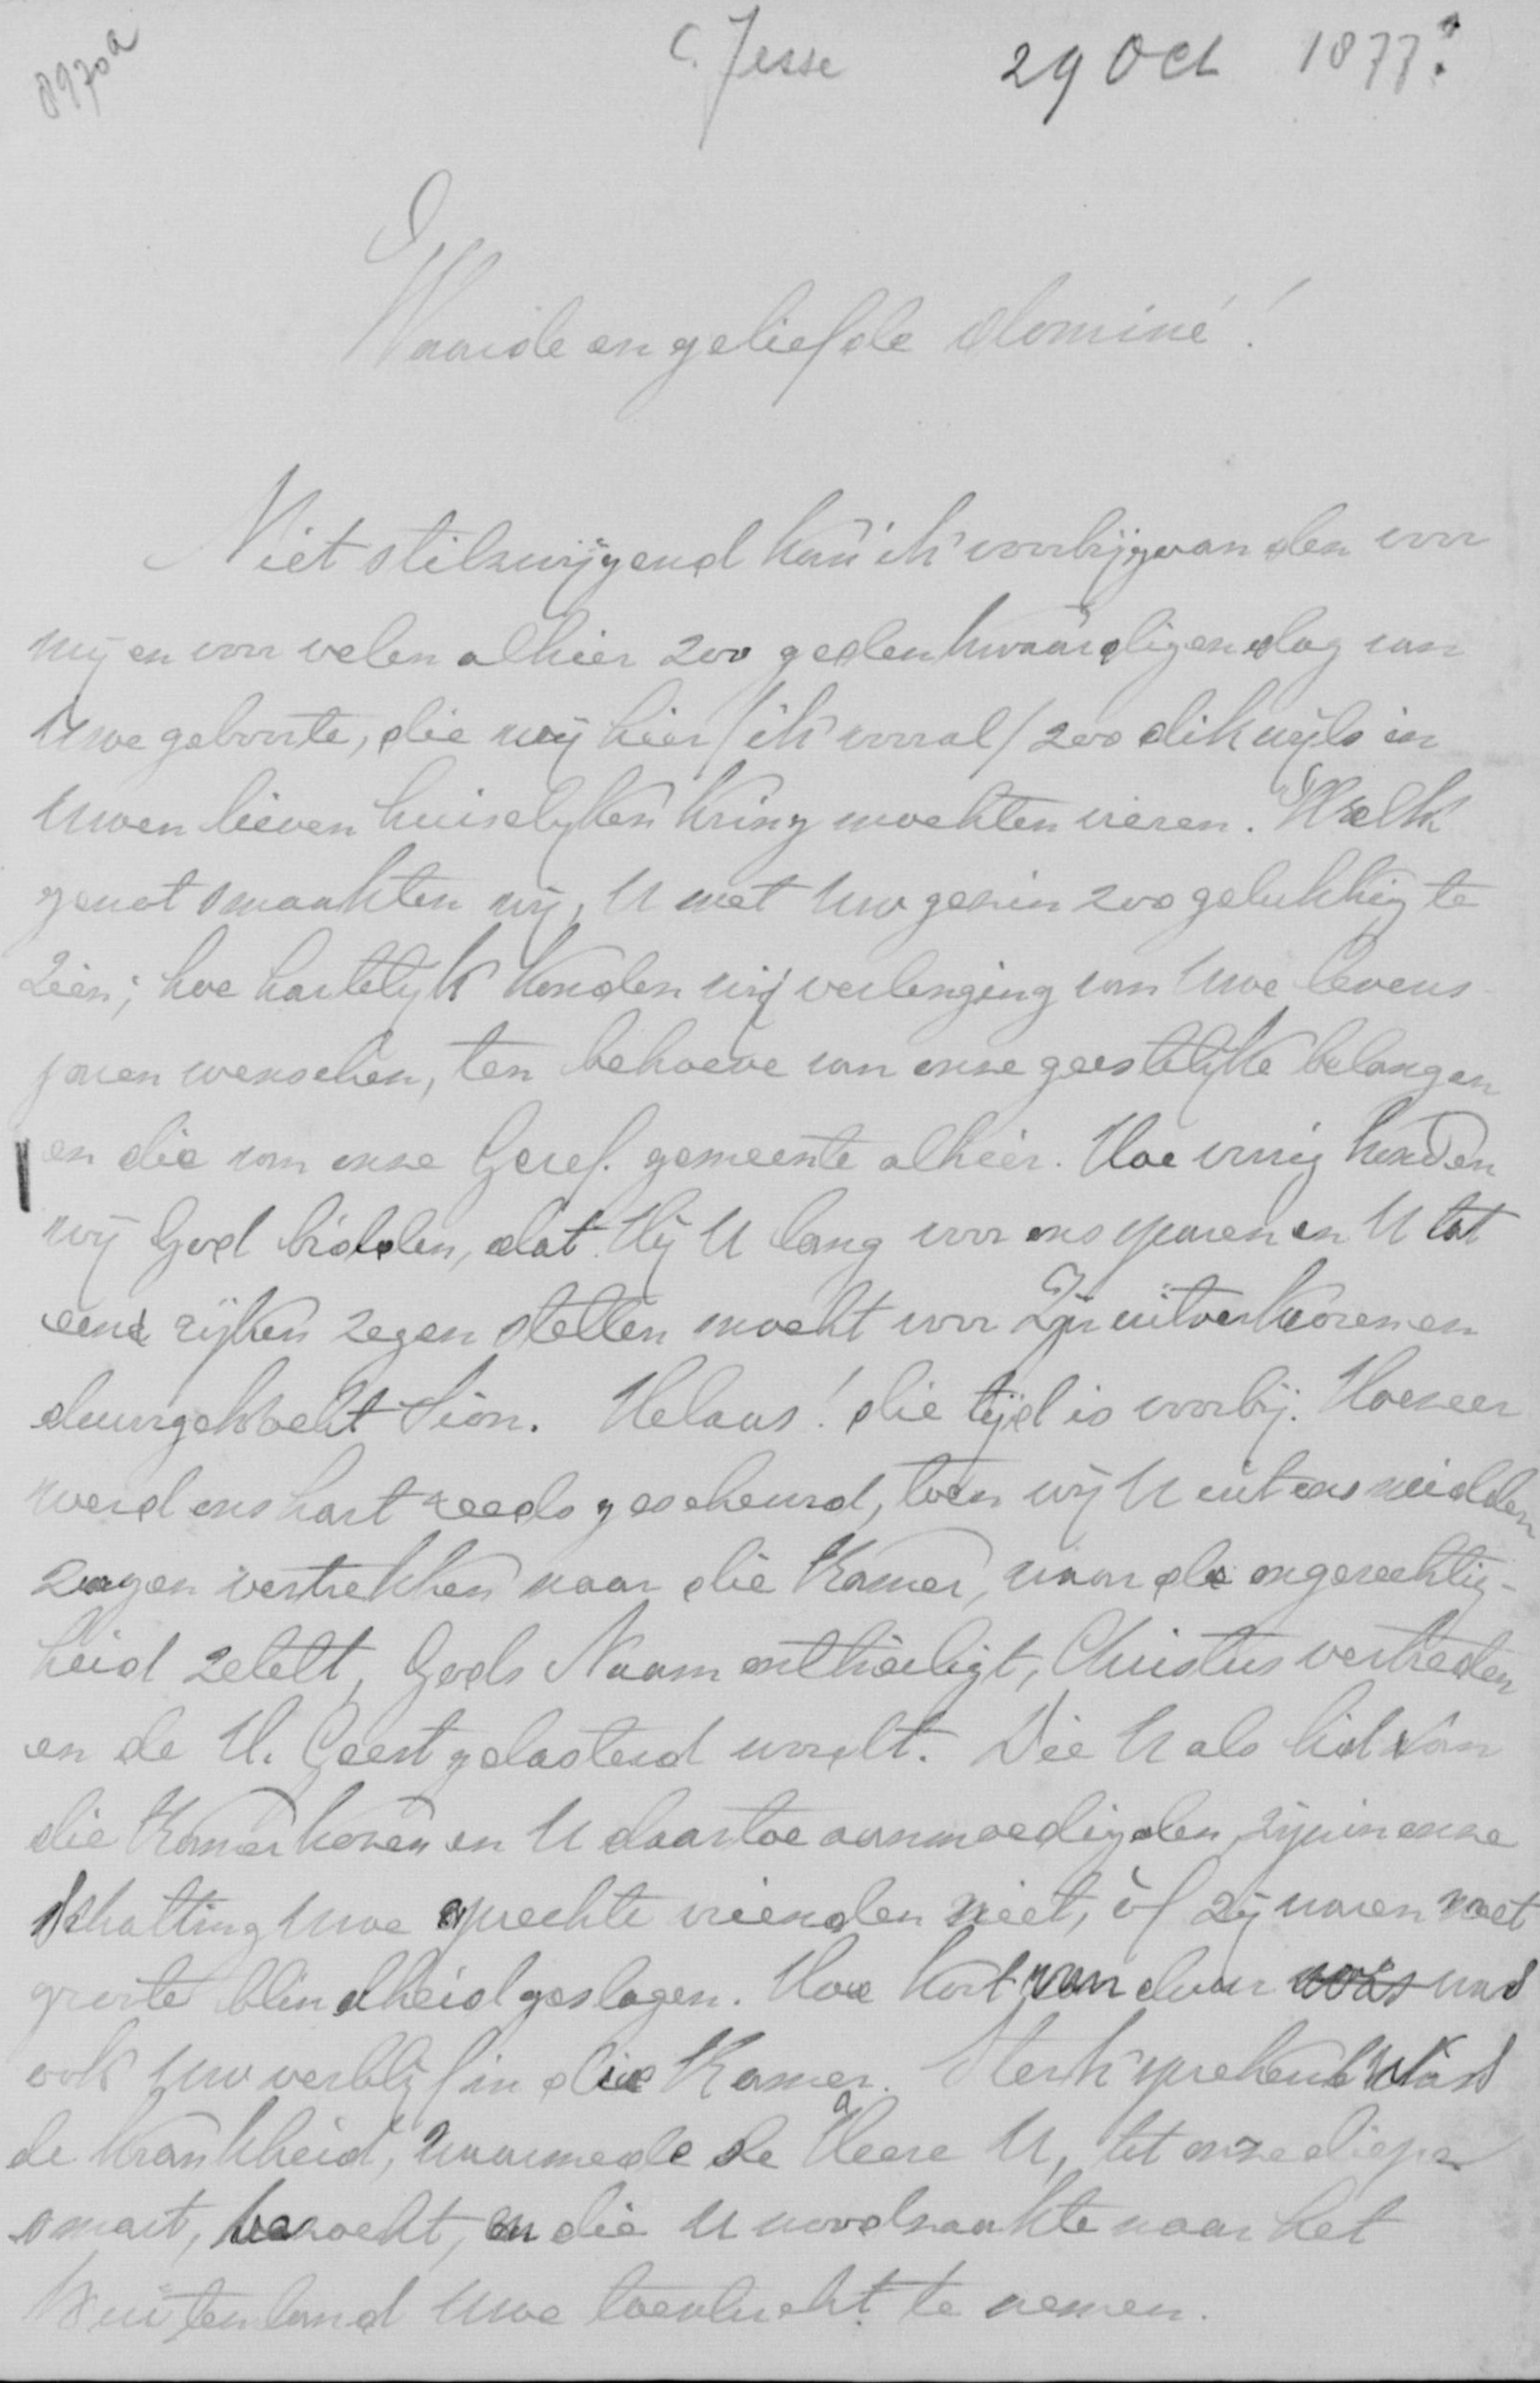 8970a
C. Jesse 29 Oct 1877?
Waarde en geliefde Dominé!
Niet stilzwijgend kan ik voorbijgaan den voor
mij en voor velen alhier zoo gedenkwaardigen dag van
Uwe geboorte, die wij hier /ik vooral/ zoo dikwijls in
Uwen lieven huiselijken kring mochten vieren. Welk
genot smaakten wij, U met Uw gezin zoo gelukkig te
zien; hoe hartelijk konden wij verlenging van Uwe levens-
jaren wenschen, ten behoeve van onze geestelijke belangen
en die van onze Geref. gemeente alhier. Hoe vurig konden
wij God bidden, dat Hij U lang voor ons sparen en U tot
eene rijken zegen stellen mocht voor Zijn uitverkoren en
duurgekocht Sion. Helaas! die tijd is voorbij. Hoezeer
werd ons hart reeds gescheurd, toen wij U uit ons midden
zagen vertrekken naar die Kamer, waar de ongerechtig-
heid zetelt, Gods Naam ontheiligt, Christus vertreden
en de H. Geest gelasterd wordt. Die U als lid van
die Kamer kozen en U daartoe aanmoedigden, zijn in onze
schatting Uwe oprechte vrienden niet, òf zij waren met
groote blindheid geslagen. Hoe kort van duur was was
ook Uw verblijf in die Kamer. Sterk sprekend was
de krankheid, waarmede de Heere U, tot onze diepe
smart, bezocht, en die U noodzaakte naar het
Buitenland Uwe toevlucht te nemen.